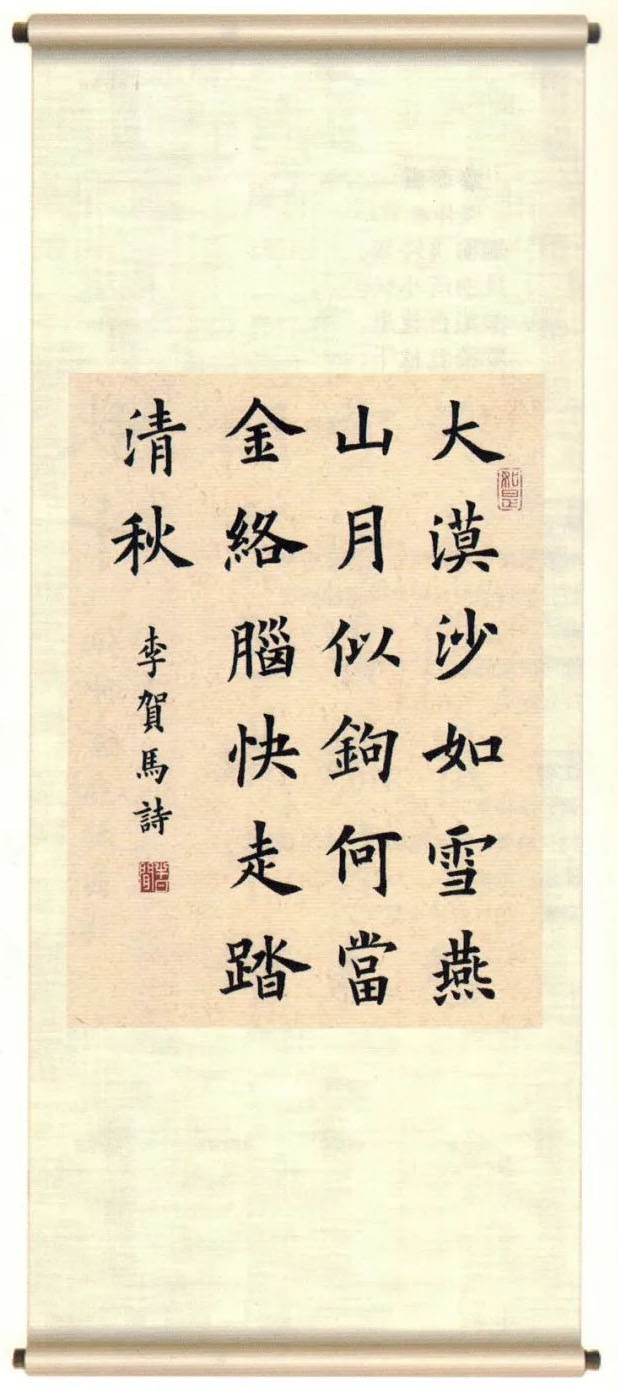 大漠沙如雪燕
山月似鉤何當
金絡腦快走踏
清秋
李賀馬詩
如是